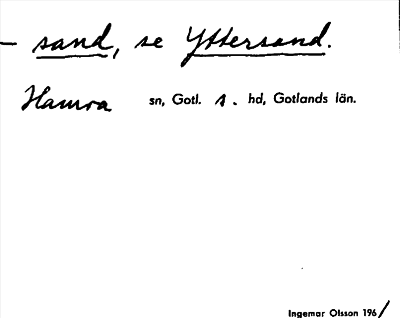 – sand, se Yttersand.
Hamra sn, Gotl. s. hd, Gotlands län.
Ingemar Olsson 196/